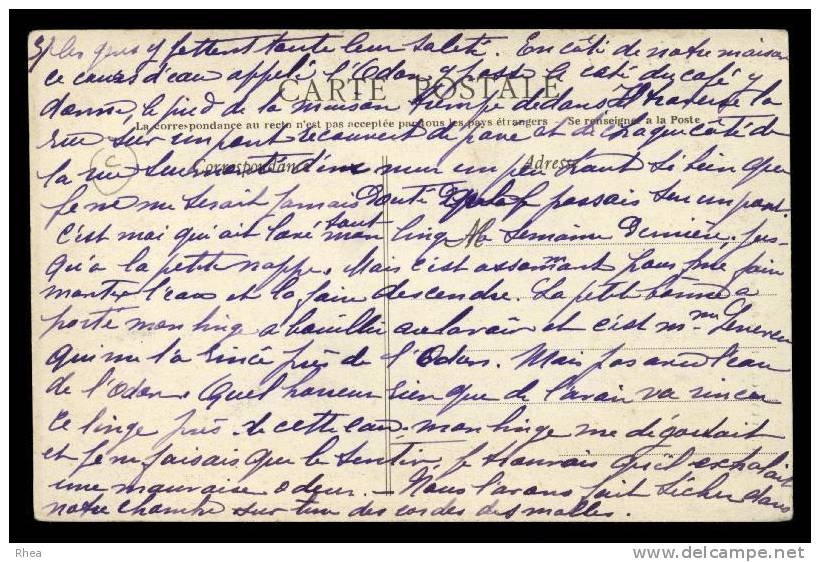 5/ les gens y jettent toute leur saleté. En côté de notre maison
ce cours d'eau appelé l'Odon y passe le côté du café y
CARTE POSTALE
donne, le pied de la maison trempe dedans Il traverse la
La correspondance au recto n'est pas acceptée par tous les pays étrangers - Se renseigner à la Poste
rue sur un pont recouvert de pavé et de chaque côté de
C
Correspondance
Adresse
la rue d'un mur un peu haut si bien que
je ne me serait jamais douté que je passais sur un pont
c'est moi qui ait lavé tout mon linge la semaine dernière, jus-
qu'à la petite nappe. Mais c'est assommant pour faire
monter l'eau et la faire descendre. La petite bonne a
porté mon linge a bouillir au lavoir et c'est Mme
qui me l'a rincé près de l'Odon. Mais pas avec l'eau
de l'Odon. Quel horreur rien que de l'avoir vu rincer
ce linge près de cette eau, mon linge me dégoutait
et je ne faisais que le sentir. Je trouvais qu'il exhalait
une mauvaise odeur. - Nous l'avons fait sécher dans
notre chambre sur une des cordes des malles.
Rhea
www.delcampe.net